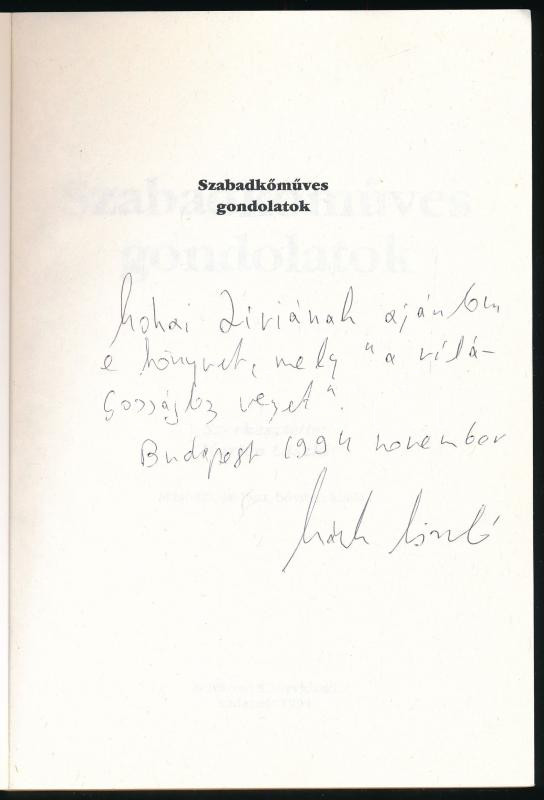 Szabadkőműves
gondolatok
Mohai Líviának ajánlom
e könyvet, mely "a vilá-
gossághoz vezet".
Budapest 1994 november
Márk László